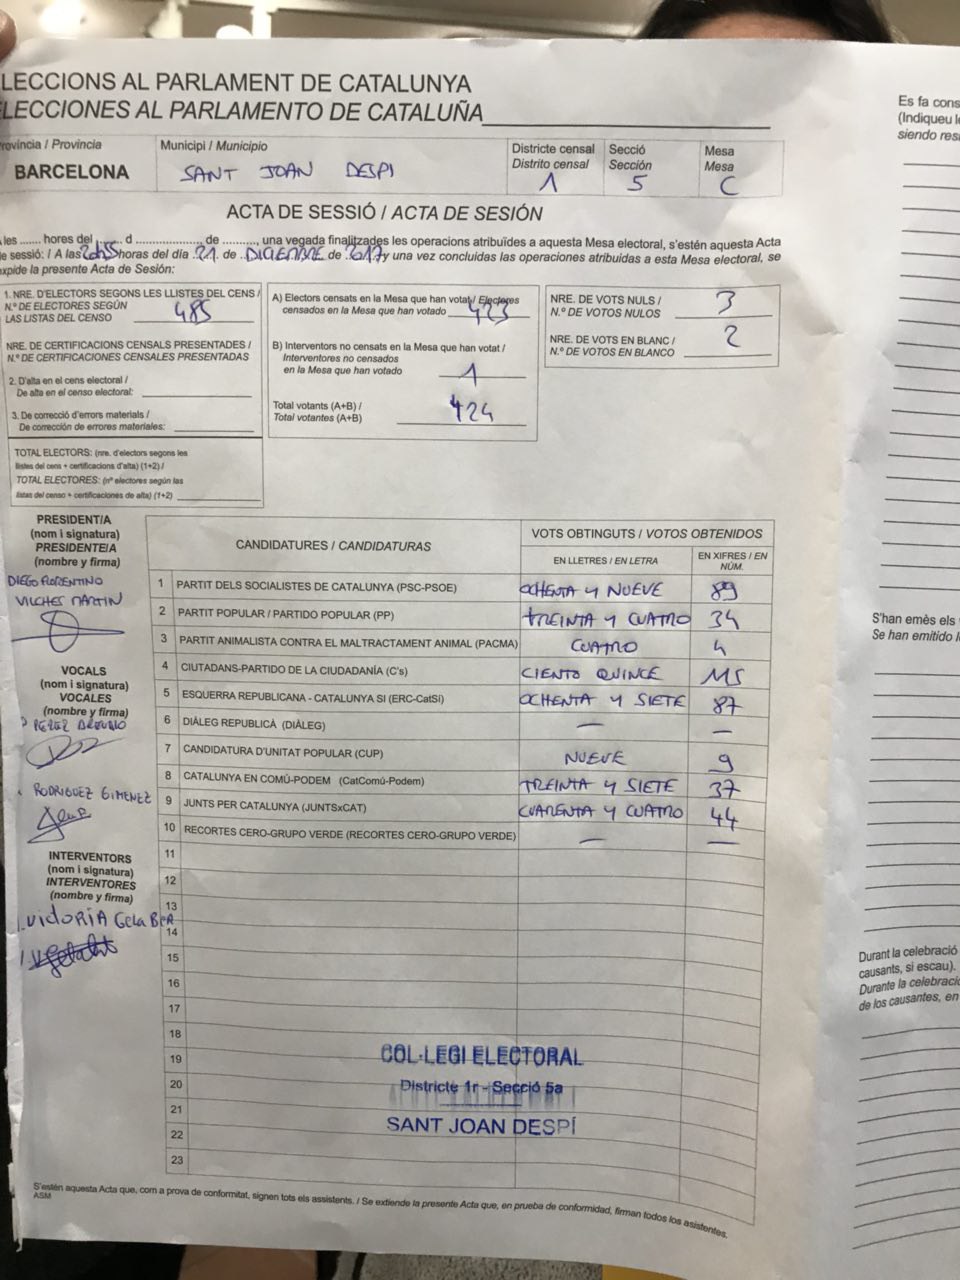 LECCIONS AL PARLAMENT DE CATALUNYA
LECCIONES AL PARLAMENTO DE CATALUÑA
rovíncia / Provincia
BARCELONA
Municipi / Municipio
SANT JOAN DESPI
Districte censal
Distrito censal
1
Secció
Sección
5
Mesa
Mesa
C
ACTA DE SESSIÓ / ACTA DE SESIÓN
les ....... hores del ....... d .................... de .........., una vegada finalitzades les operacions atribuïdes a aquesta Mesa electoral, s'estén aquesta Acta
de sessió: / A las horas del día 21 de DICIEMBRE de y una vez concluidas las operaciones atribuidas a esta Mesa electoral, se
expide la presente Acta de Sesión:
1. NRE. D'ELECTORS SEGONS LES LLISTES DEL CENS /
N.º DE ELECTORES SEGÚN
LAS LISTAS DEL CENSO 485
NRE. DE CERTIFICACIONS CENSALS PRESENTADES /
N.º DE CERTIFICACIONES CENSALES PRESENTADAS
2. D'alta en el cens electoral /
De alta en el censo electoral:
3. De correcció d'errors materials /
De corrección de errores materiales:
TOTAL ELECTORS: (nre. d'electors segons les
llistes del cens + certificacions d'alta) (1+2) /
TOTAL ELECTORES: (nº electores según las
listas del censo + certificaciones de alta) (1+2)
A) Electors censats en la Mesa que han votat / Electores
censados en la Mesa que han votado 423
B) Interventors no censats en la Mesa que han votat /
Interventores no censados
en la Mesa que han votado 1
Total votants (A+B) /
Total votantes (A+B) 424
NRE. DE VOTS NULS /
N.º DE VOTOS NULOS 3
NRE. DE VOTS EN BLANC /
N.º DE VOTOS EN BLANCO 2
PRESIDENT/A
(nom i signatura)
PRESIDENTE/A
(nombre y firma)
DIEGO FLORENTINO
VILCHES MARTIN
VOCALS
(nom i signatura)
VOCALES
(nombre y firma)
PEREZ
RODRIGUEZ GIMENEZ
INTERVENTORS
(nom i signatura)
INTERVENTORES
(nombre y firma)
VICTORIA GELABER
CANDIDATURES / CANDIDATURAS
VOTS OBTINGUTS / VOTOS OBTENIDOS
EN LLETRES / EN LETRA
EN XIFRES / EN NÚM.
1 PARTIT DELS SOCIALISTES DE CATALUNYA (PSC-PSOE) OCHENTA Y NUEVE 89
2 PARTIT POPULAR / PARTIDO POPULAR (PP) TREINTA Y CUATRO 34
3 PARTIT ANIMALISTA CONTRA EL MALTRACTAMENT ANIMAL (PACMA) CUATRO 4
4 CIUTADANS-PARTIDO DE LA CIUDADANÍA (C's) CIENTO QUINCE 115
5 ESQUERRA REPUBLICANA - CATALUNYA SI (ERC-CatSí) OCHENTA Y SIETE 87
6 DIÀLEG REPUBLICÀ (DIÀLEG) — —
7 CANDIDATURA D'UNITAT POPULAR (CUP) NUEVE 9
8 CATALUNYA EN COMÚ-PODEM (CatComú-Podem) TREINTA Y SIETE 37
9 JUNTS PER CATALUNYA (JUNTSxCAT) CUARENTA Y CUATRO 44
10 RECORTES CERO-GRUPO VERDE (RECORTES CERO-GRUPO VERDE) — —
11
12
13
14
15
16
17
18
19
20
21
22
23
COL·LEGI ELECTORAL
Districte 1r - Secció 5a
SANT JOAN DESPÍ
S'estén aquesta Acta que, com a prova de conformitat, signen tots els assistents. / Se extiende la presente Acta que, en prueba de conformidad, firman todos los asistentes.
ASM
Es fa cons
(Indiqueu le
siendo res
S'han emès els
Se han emitido l
Durant la celebració
causants, si escau).
Durante la celebració
de los causantes, en